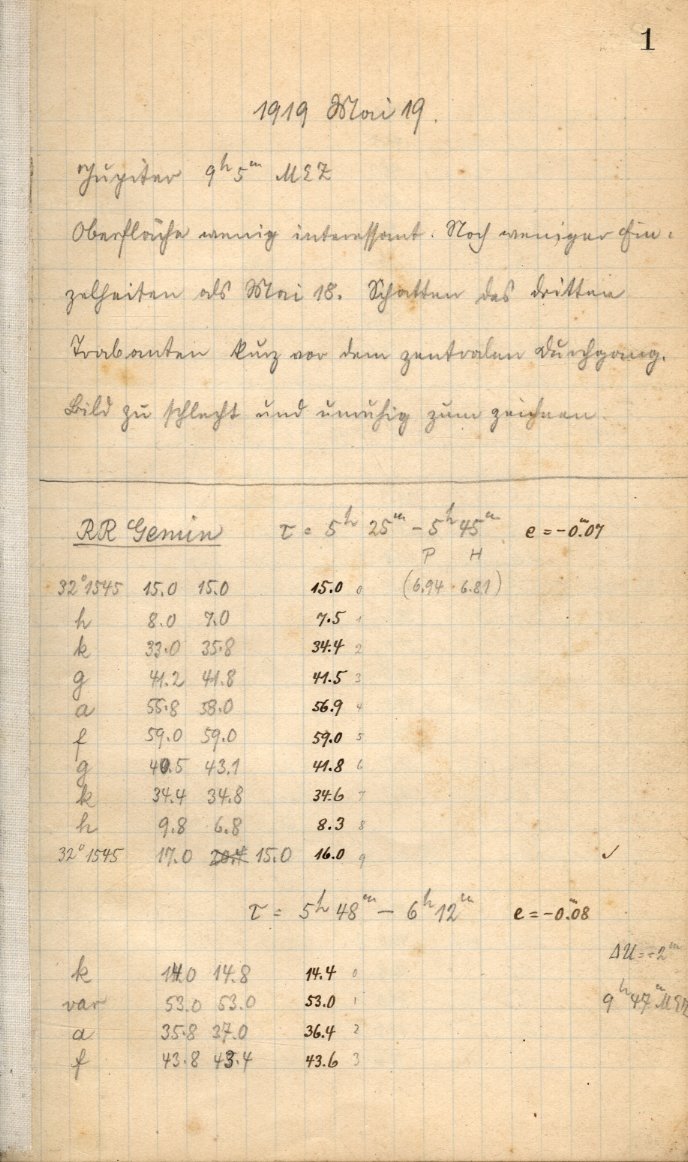 1
1919 Mai 19.
Jupiter 9h 5m MEZ
Oberfläche wenig interessant. Noch weniger Ein-
zelheiten als Mai 18. Schatten des dritten
Trabanten kurz vor dem zentralen Durchgang.
Bild zu schlecht und unruhig zum zeichnen.
RR Gemin τ = 5h 25m – 5h 45m e = -0.m07
P H
32°1545 15.0 15.0 15.0 0 (6.94 · 6.81)
h 8.0 7.0 7.5 1
k 33.0 35.8 34.4 2
g 41.2 41.8 41.5 3
a 55.8 58.0 56.9 4
f 59.0 59.0 59.0 5
g 40.5 43.1 41.8 6
k 34.4 34.8 34.6 7
h 9.8 6.8 8.3 8
32°1545 17.0 15.0 16.0 9 ✓
τ = 5h 48m – 6h 12m e = -0.m08
ΔU = -2m
k 14.0 14.8 14.4 0
var 53.0 53.0 53.0 1 9h 47m MEZ
a 35.8 37.0 36.4 2
f 43.8 43.4 43.6 3